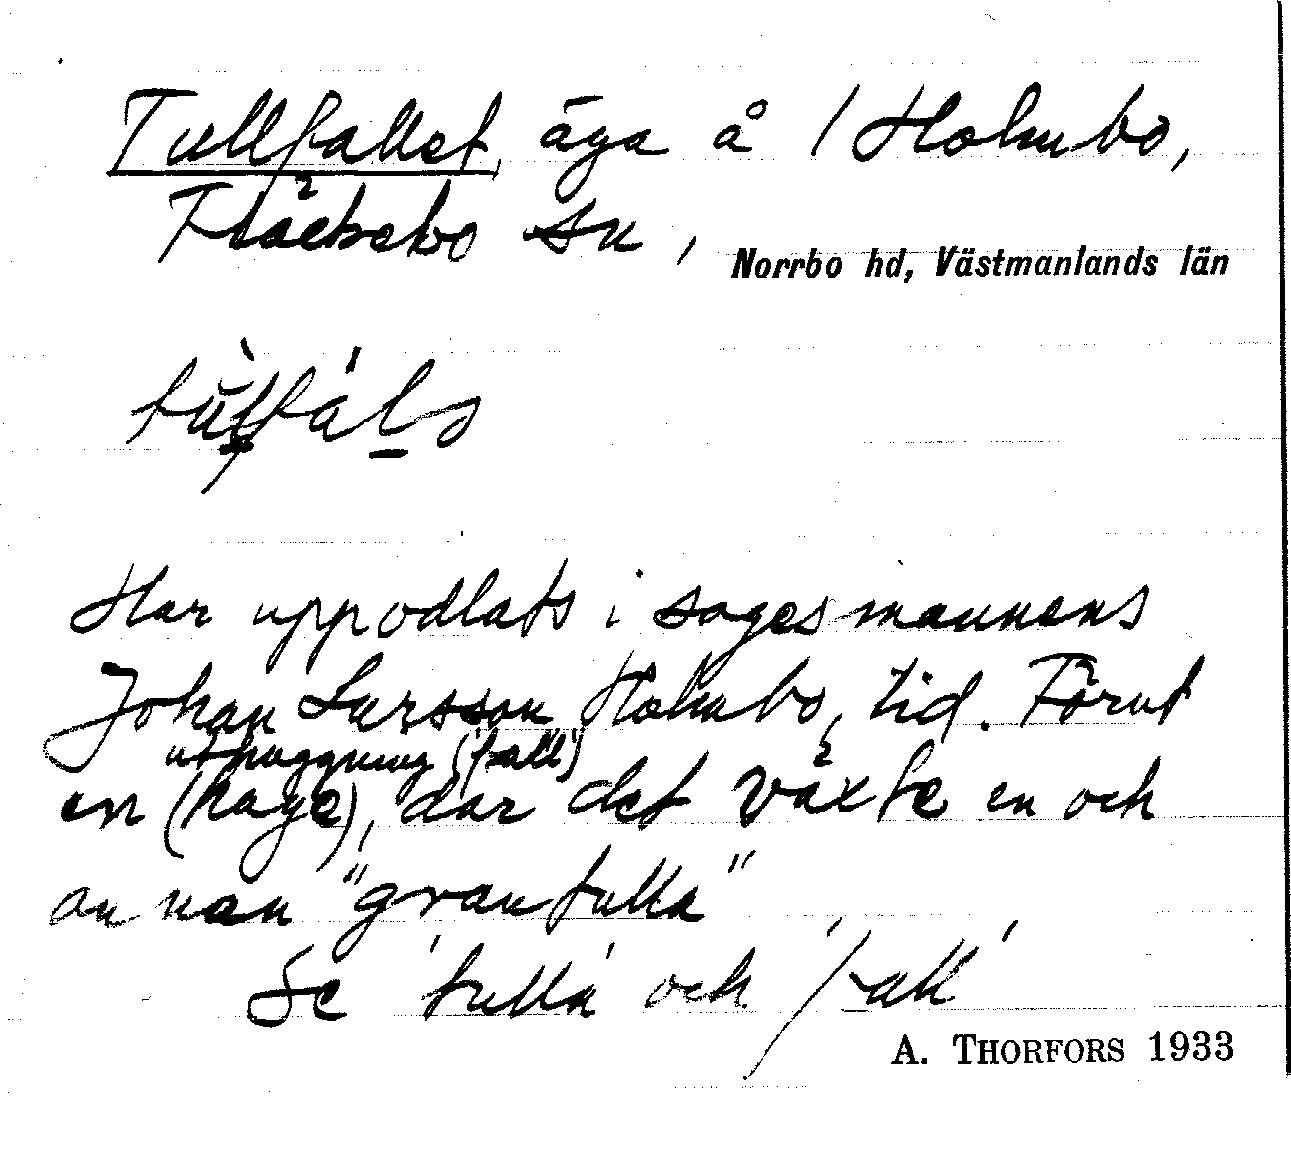 Tullfallet, äga å 1 Holmbo,
Fläckebo sn,
Norrbo hd, Västmanlands län
Har uppodlats i sagesmannens
Johan Larsson, Holmbo, tid. Förut
uthuggning (fall)
en (hage), där det växte en och
annan "grantulla"
Se 'tulla' och 'fall'
A. THORFORS 1933